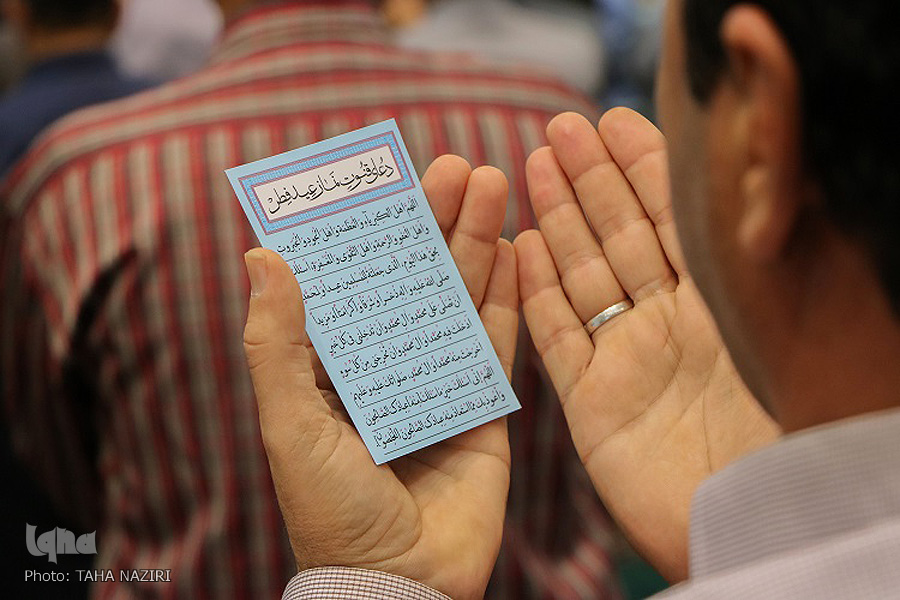 دعای قنوت نماز عید فطر
اللهم اهل الکبریاء و العظمة و اهل الجود و الجبروت
و اهل العفو و الرحمة و اهل التقوی و المغفرة، اسئلک
بحق هذا الیوم، الذی جعلته للمسلمین عیدا و لمحمد
صلی الله علیه و آله ذخرا و شرفا و کرامتا و مزیدا
ان تصلی علی محمد و آل محمد و ان تدخلنی فی کل خیر
ادخلت فیه محمدا و آل محمد و ان تخرجنی من کل سوء
اخرجت منه محمدا و آل محمد، صلواتک علیه و علیهم
اللهم انی اسئلک خیر ما سئلک منه عبادک الصالحون
و اعوذ بک مما استعاذ منه عبادک الصالحون المخلصون.
iqna
Photo: TAHA NAZIRI